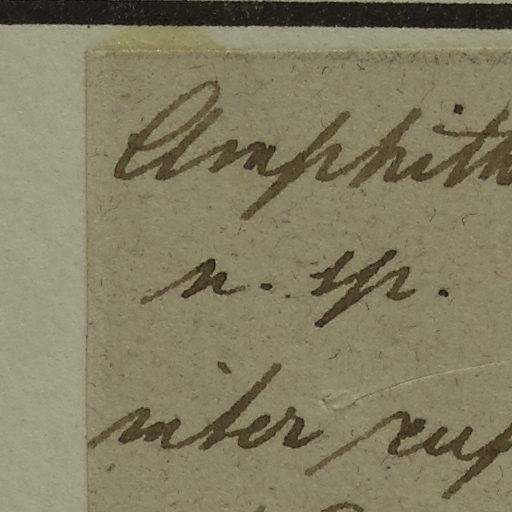 Amphith
n. sp.
inter rup